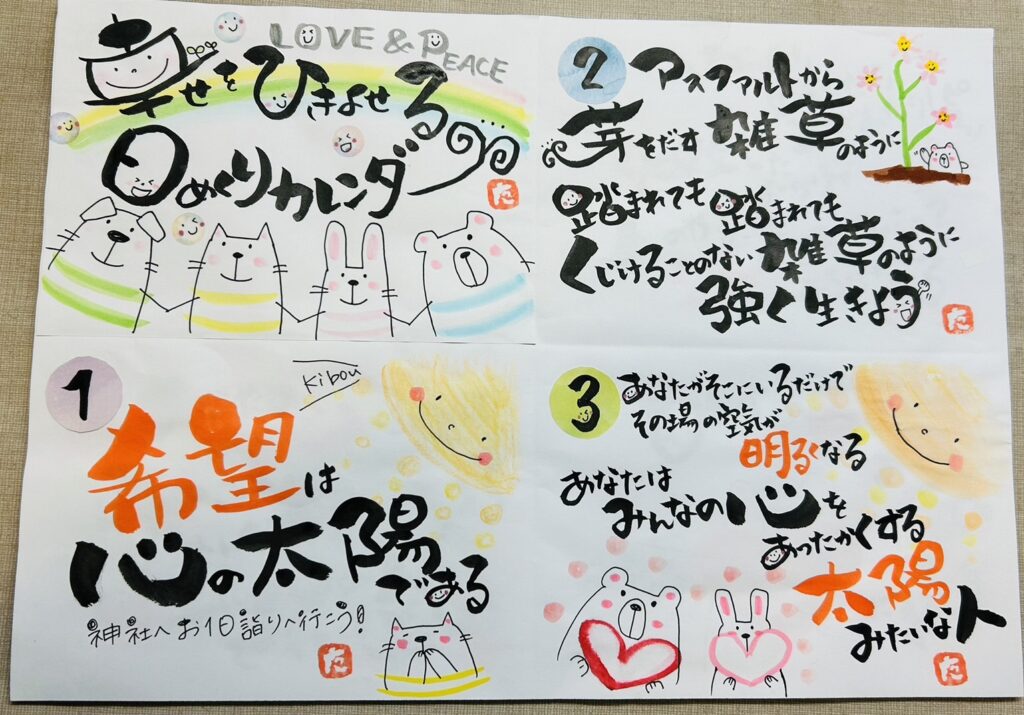 LOVE & PEACE
幸せをひきよせる
日めくりカレンダー
た
1
Kibou
希望は
心の太陽
である
神社へお1日詣りへ行こう!
た
2
アスファルトから
芽をだす雑草のように
踏まれても踏まれても
くじけることのない雑草のように
強く生きよう
た
3
あなたがそこにいるだけで
その場の空気が
明るくなる
あなたは
みんなの心を
あったかくする
太陽
みたいな人
た